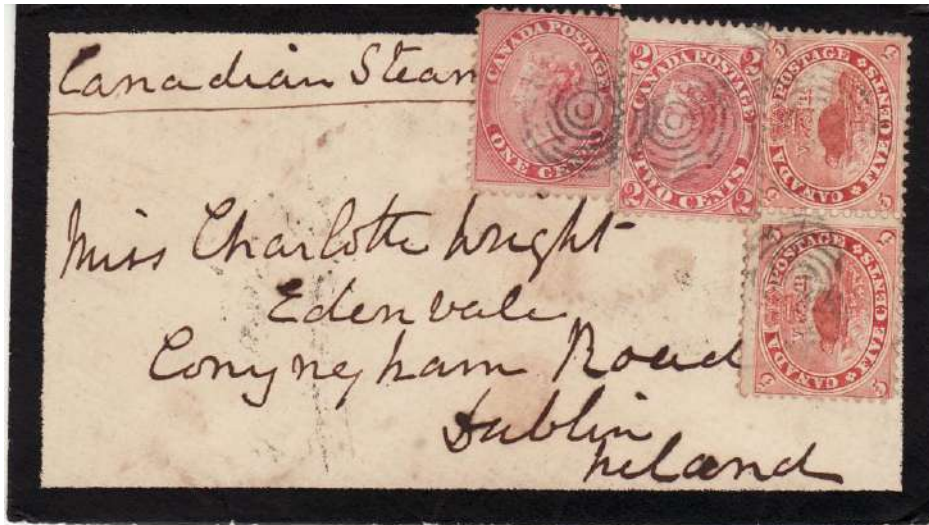 Canadian Steam
CANADA POSTAGE
ONE CENT
2 CANADA POSTAGE 2
2 TWO CENTS 2
5 POSTAGE FIVE CENTS CANADA 5
5 POSTAGE FIVE CENTS CANADA 5
Miss Charlotte Wright
Edenvale
Conyngham Road
Dublin
Ireland